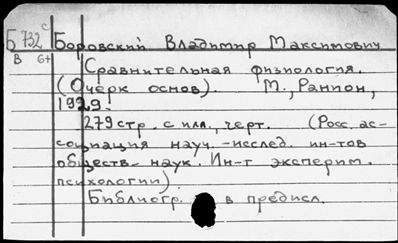 Б 732 с Боровский Владимир Максимович
В 6+
Сравнительная физиология.
(Очерк основ). М., Ранион,
1929.
279 стр. с илл., черт. (Росс. ас-
социация науч.-исслед. ин-тов
обществ. наук. Ин-т эксперим.
психологии).
Библиогр. в предисл.